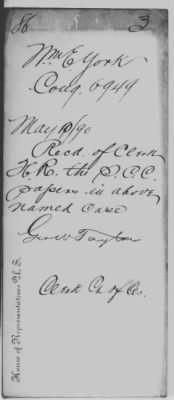 86 3
Wm E York
Cong. 6949
May 10/90
Recd. of Clerk
H. R. the P. C. C.
papers in above
named case
Geo W Taylor
Clerk Co. of Co.
House of Representatives U. S.